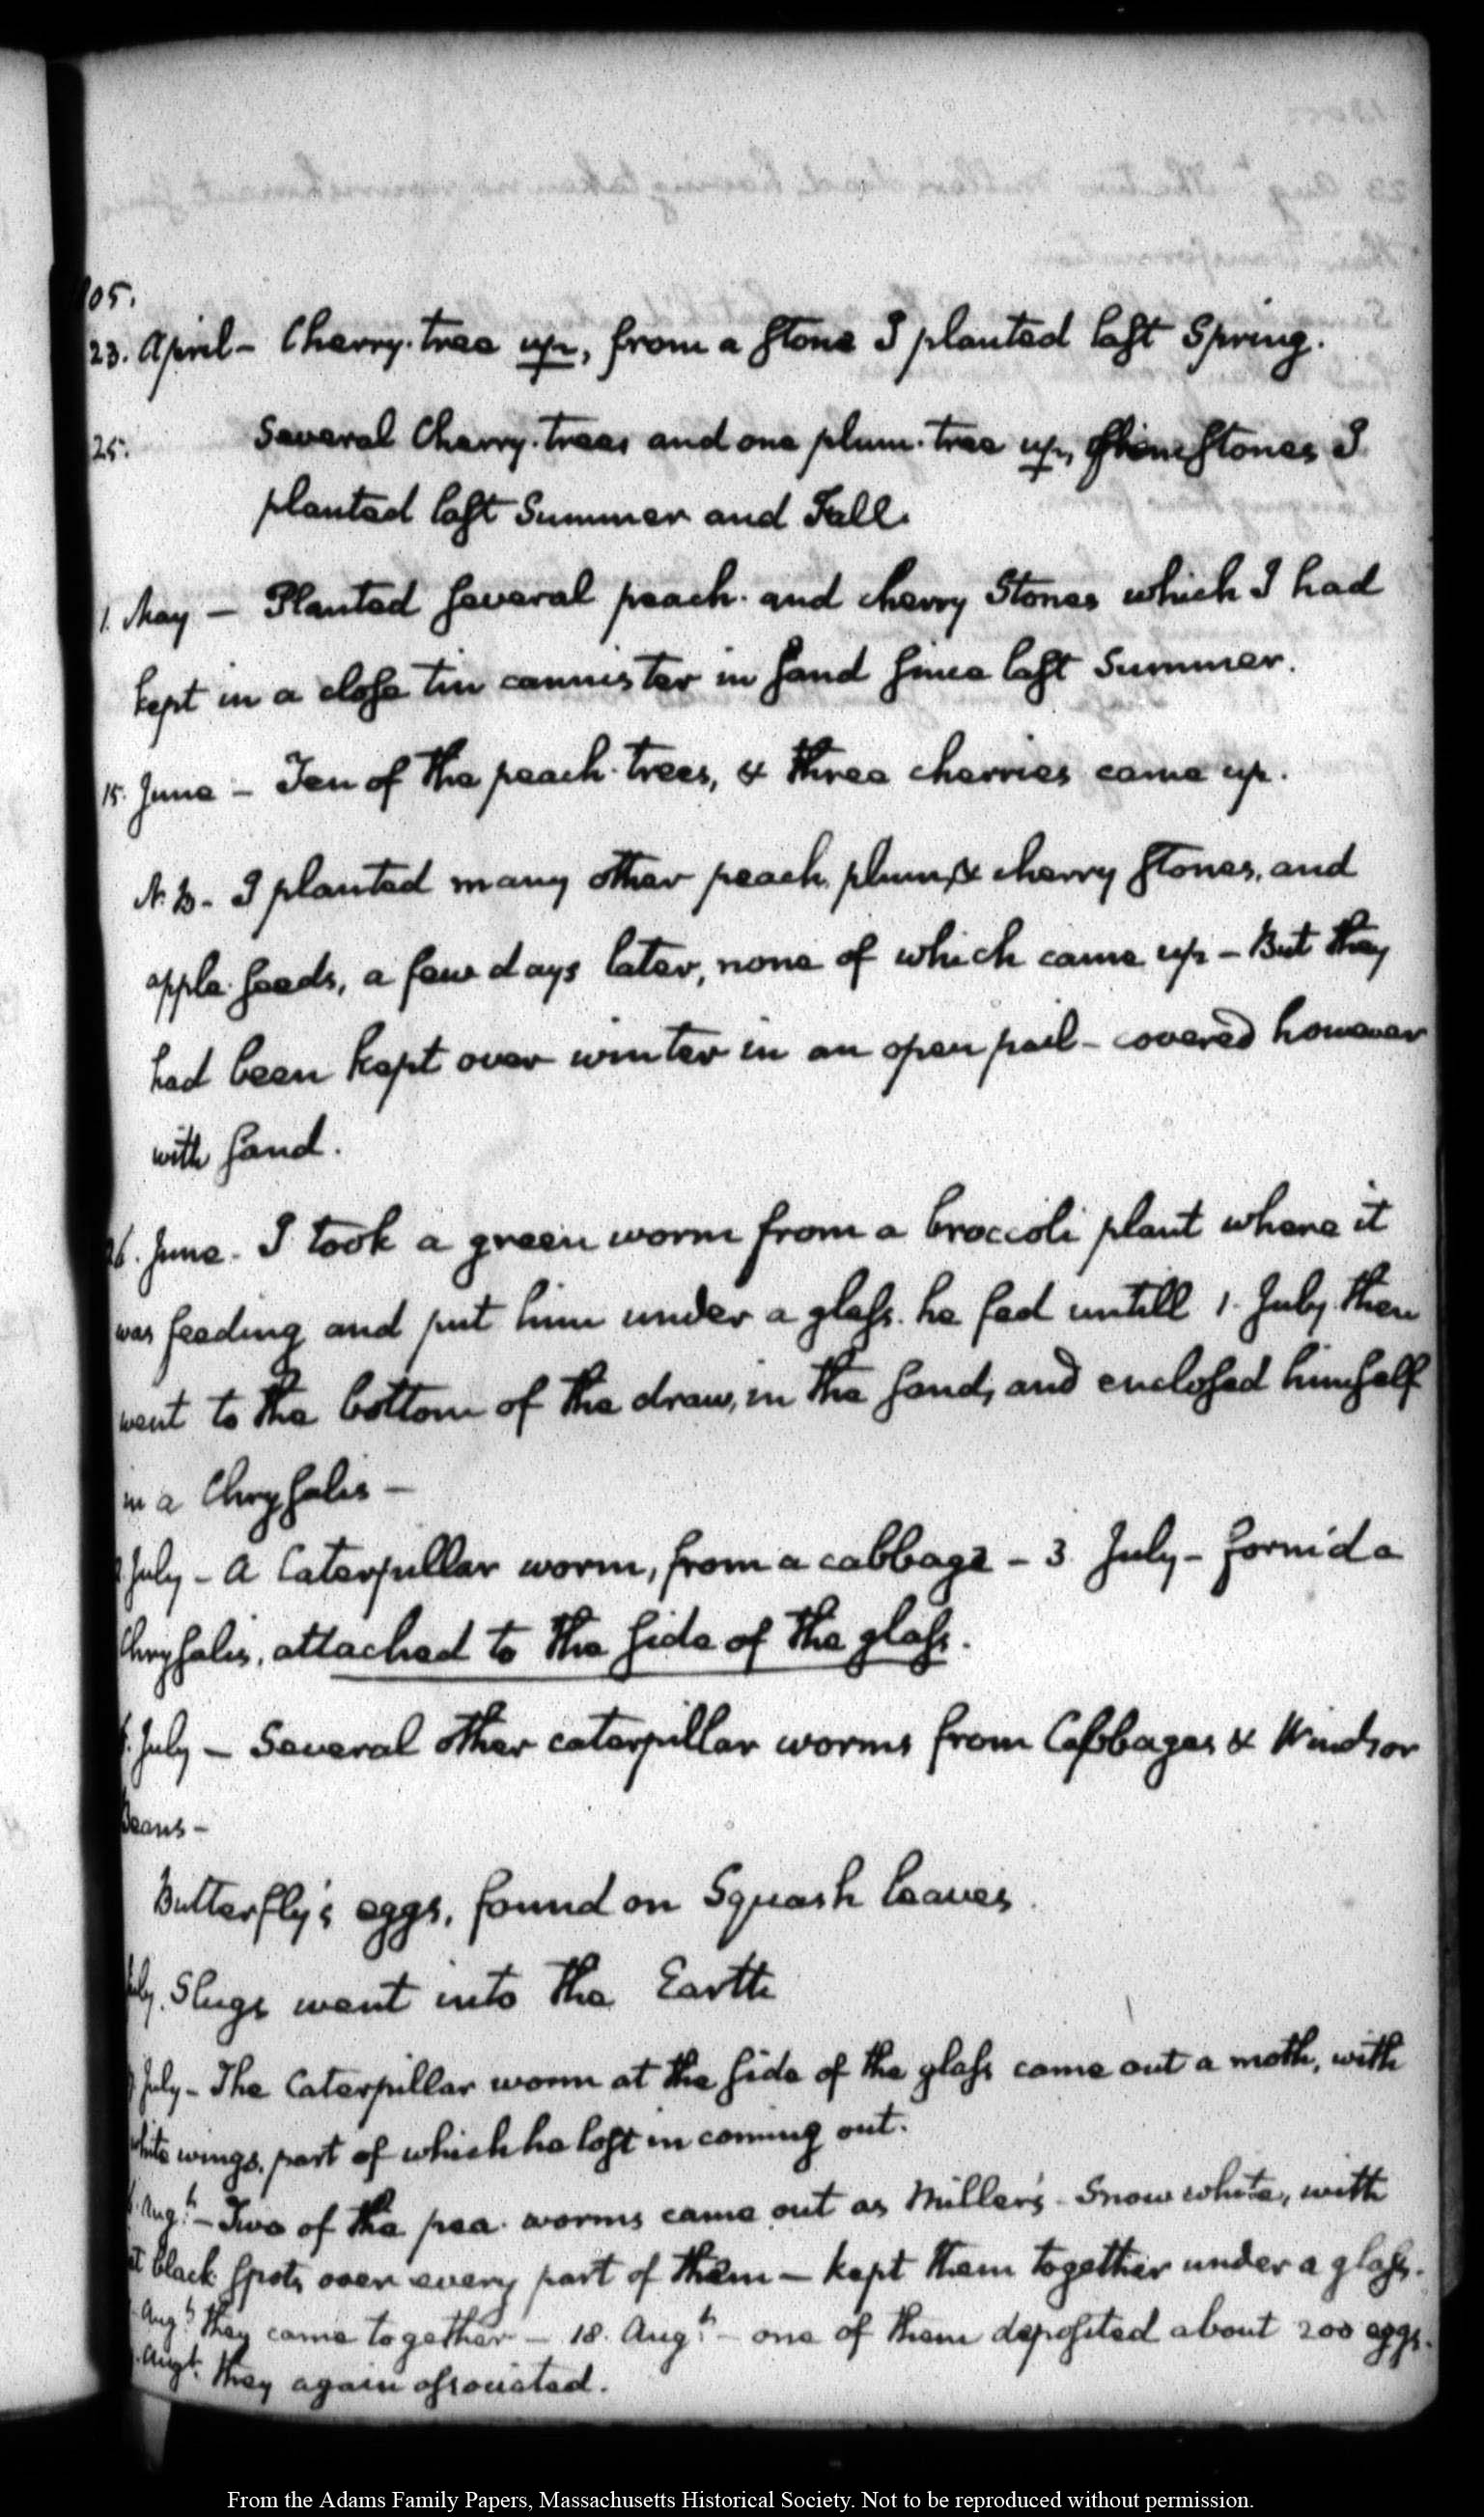 1805.
23. April - Cherry-tree up, from a stone I planted last Spring.
25. Several Cherry-trees and one plum-tree up, from stones I
planted last Summer and Fall.
1. May - Planted several peach- and cherry Stones which I had
kept in a close tin cannister in sand since last Summer.
15. June - Ten of the peach-trees, & three cherries came up.
N.B. I planted many other peach, plum, & cherry stones, and
apple-seeds, a few days later, none of which came up - But they
had been kept over winter in an open pail - covered however
with sand.
26. June. I took a green worm from a broccoli plant where it
was feeding and put him under a glass. he fed untill 1. July. then
went to the bottom of the draw, in the sand, and enclosed himself
in a Chrysalis -
July - A Caterpillar worm, from a cabbage - 3. July - form'd a
Chrysalis, attached to the side of the glass.
July - Several other caterpillar worms from Cabbages & Windsor
Beans -
Butterfly's eggs, found on Squash leaves.
July. Slugs went into the Earth
July - The Caterpillar worm at the side of the glass came out a moth, with
white wings, part of which he lost in coming out.
Augt. - Two of the pea-worms came out as Miller's - Snow white, with
black spots over every part of them - kept them together under a glass.
Augt. they came together - 18. Augt. - one of them deposited about 200 eggs.
Augt. they again associated.
From the Adams Family Papers, Massachusetts Historical Society. Not to be reproduced without permission.